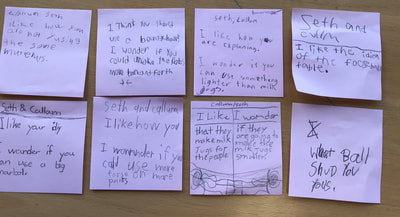 Callum Seth
I like how you
are not using
the same
materials.
I Think you should
use a
I wonder if you
could
milk back and forth
seth, callum
I like how you
are explaining.
I wonder if you
can use something
lighter than milk
jugs.
Seth and
culum
I like the idea
of the foosball
table.
Seth & Callum
I like your idy
I wonder if you
can use a big
marbol.
Seth and callum
I like how you
I wonnder if you
call use more
more
callum/seth
I Like
that they
make milk
jugs for
the people
I wonder
if they
are going to
make the
milk jugs
smaller.
What Ball
Shud
yous.